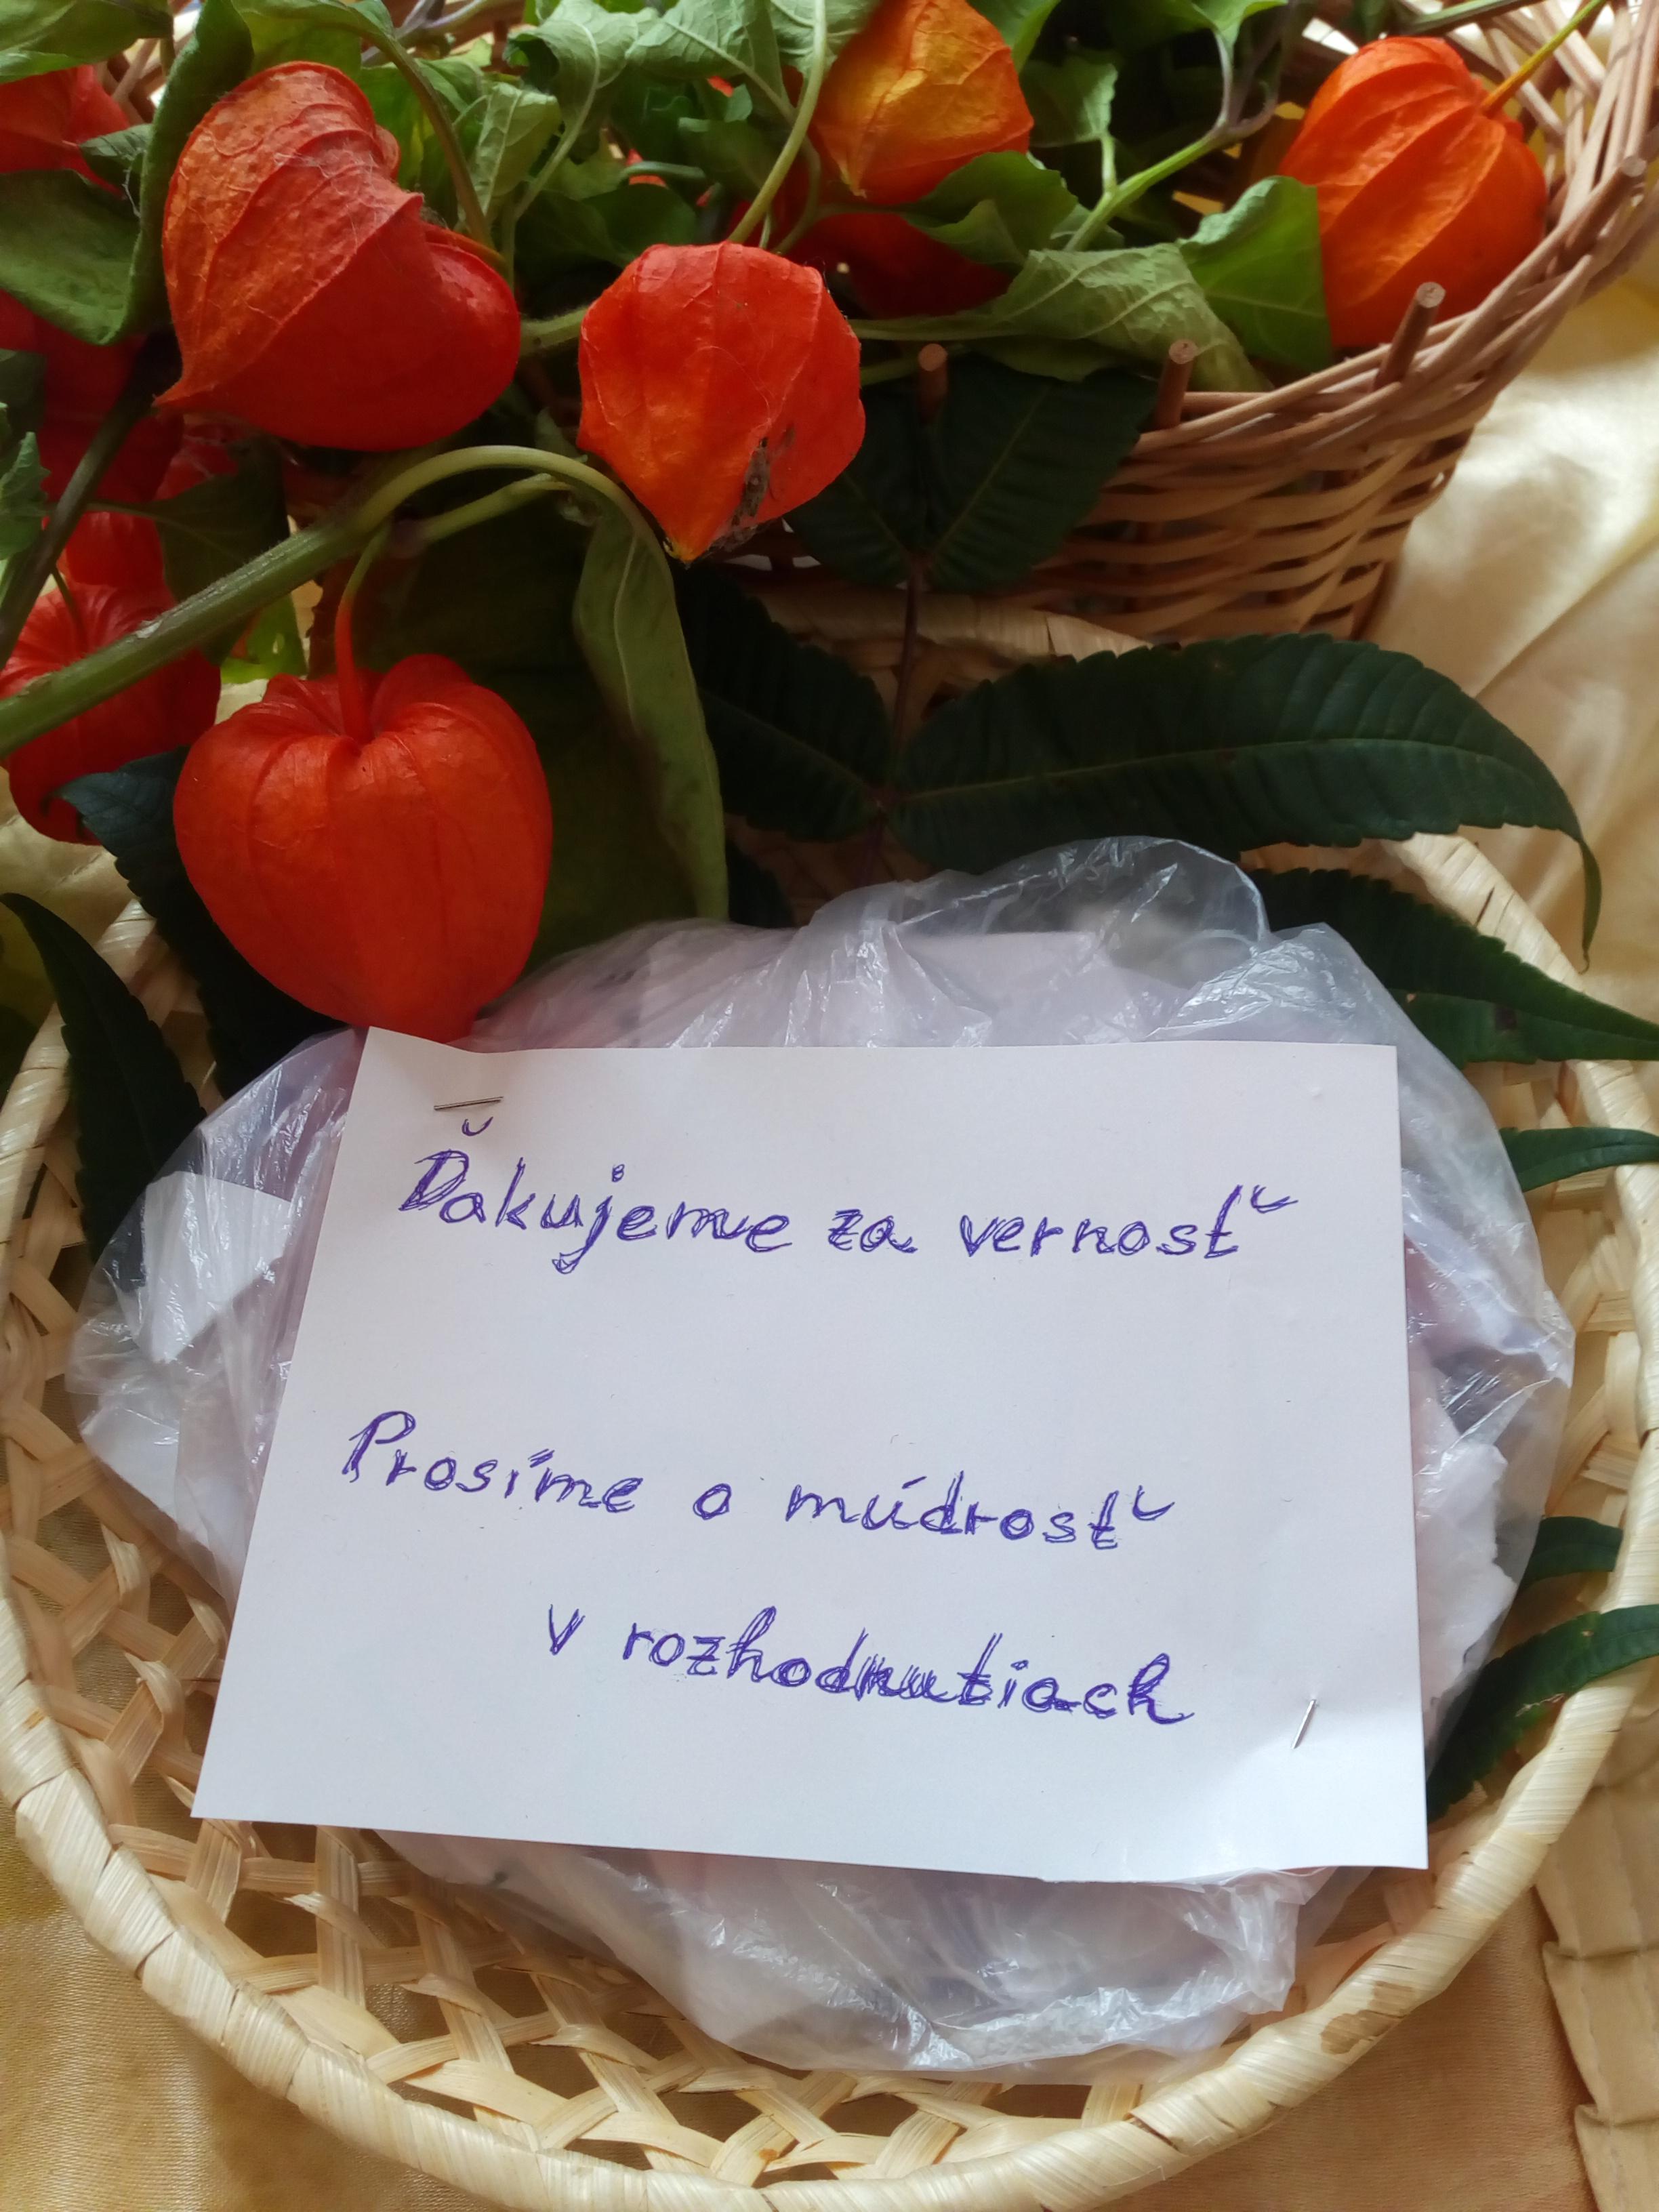 Ďakujeme za vernosť
Prosíme o múdrosť
v rozhodnutiach